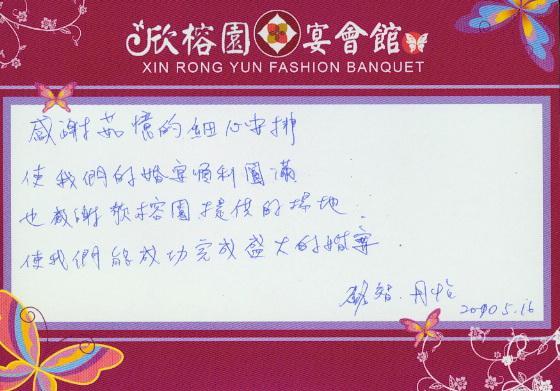 欣榕園 宴會館
XIN RONG YUN FASHION BANQUET
感謝茹憶的細心安排
使我們的婚宴順利圓滿
也感謝欣榕園提供的場地.
使我們能成功完成盛大的婚宴.
智.丹怡
2010 5.16